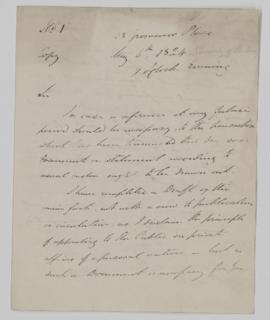 No. 1
Copy
32 Grosvenor Place
May 5th 1824
9 o'clock evening
Sir
In case a reference at any future
period should be necessary to the transaction
which has been terminated this day some
Document or statement according to
usual custom ought to be drawn out.
I have completed a Draft of the
main facts, not with a view to publication
or circulation, as I disclaim the principle
of appealing to the Public on private
affairs of a personal nature — but as
such a Document is necessary for you